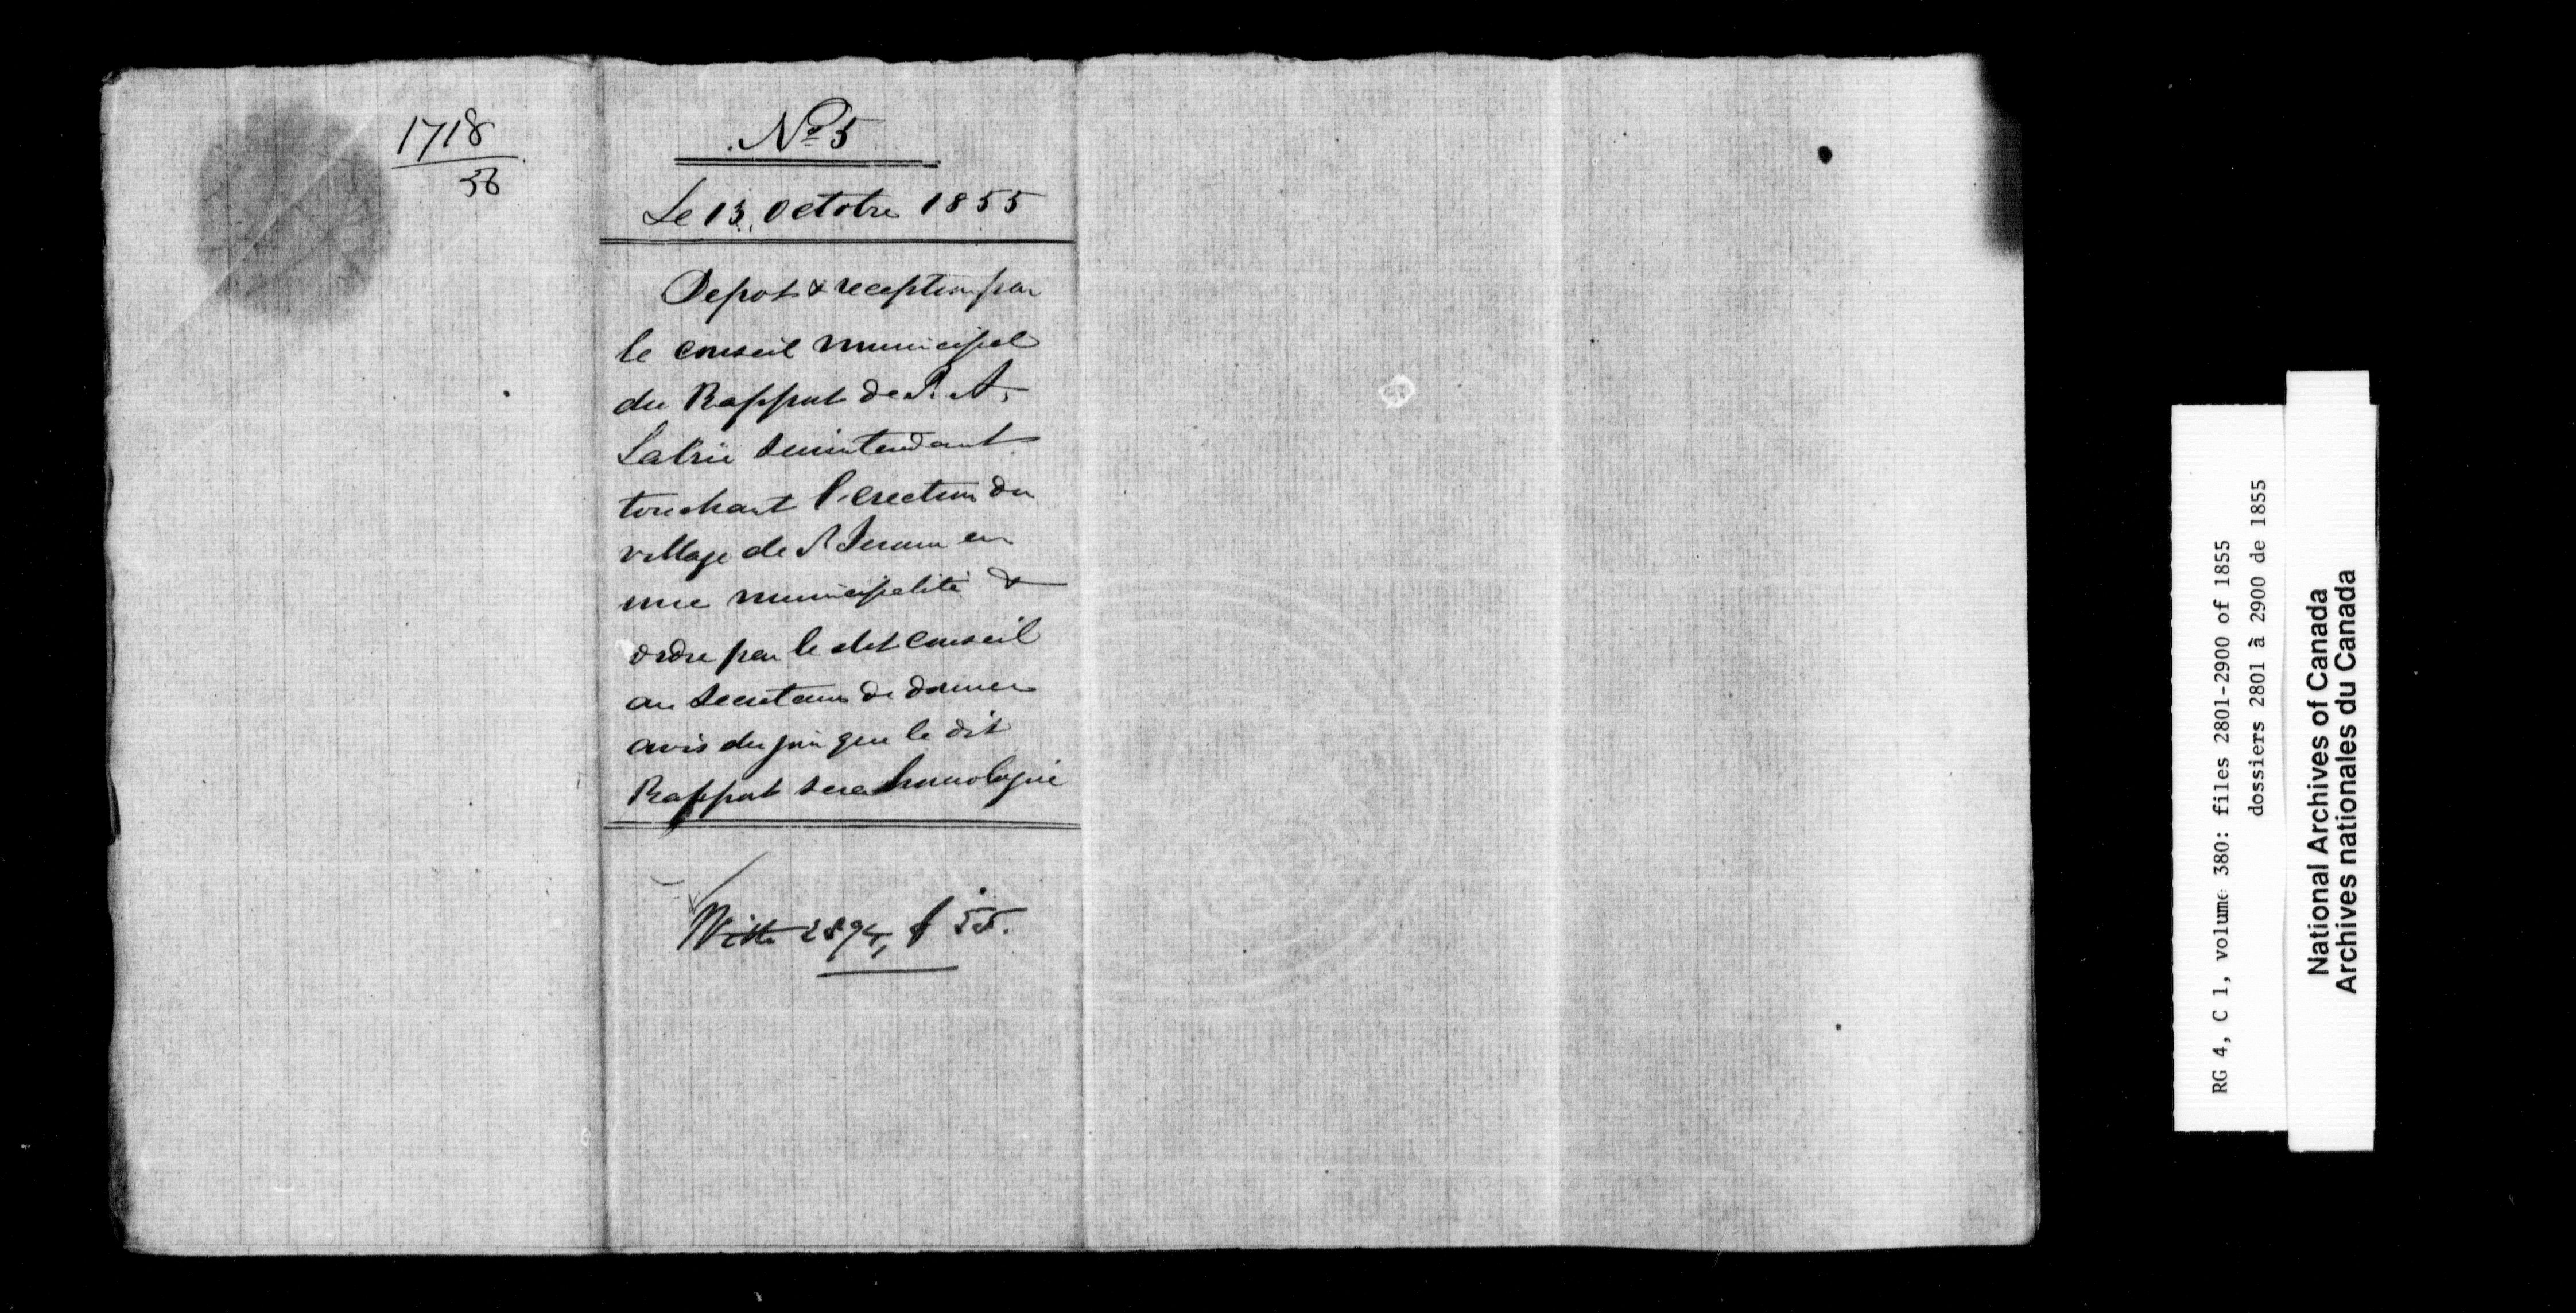 1718
56
No 5
Le 13 Octobre 1855
Depot & reception par
le conseil municipal
du Rapport de J. A.
Labrie surintendant
touchant l'erection du
village de St Jerome en
une municipalité &
ordre par le dit conseil
au secretaire de donner
avis du jour que le dit
Rapport sera homologué
With 2894, of 55.
RG 4, C 1, volume 380: files 2801-2900 of 1855
dossiers 2801 à 2900 de 1855
National Archives of Canada
Archives nationales du Canada